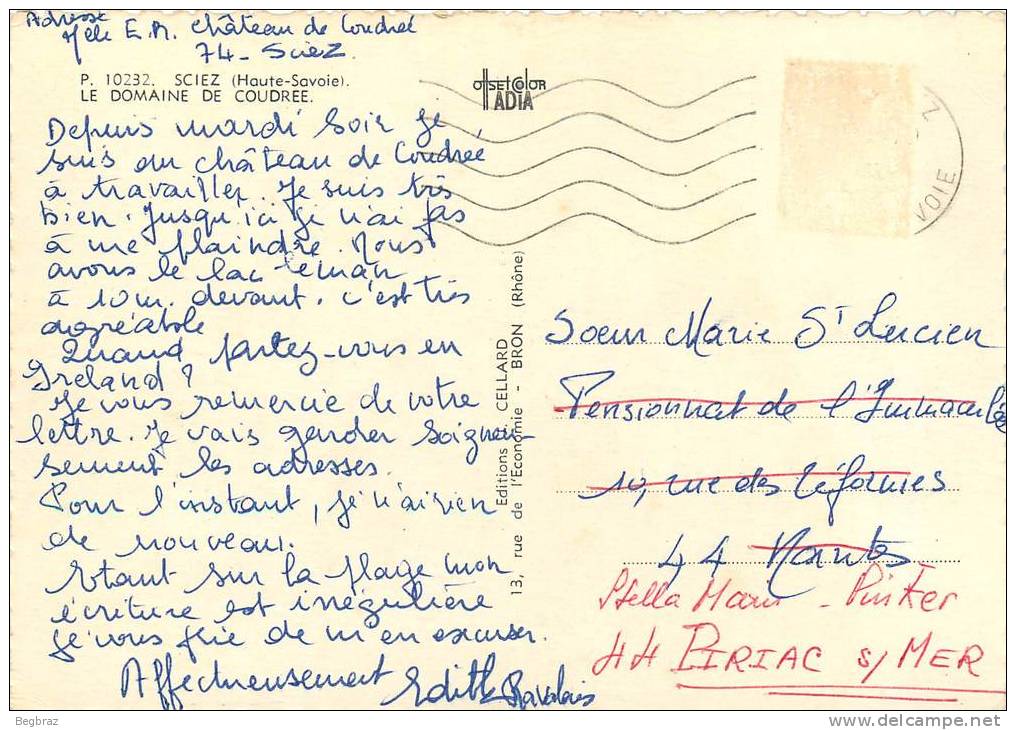 Adresse
Mlle E.R. Château de Coudrée
74 - Sciez
P. 10232. SCIEZ (Haute-Savoie).
LE DOMAINE DE COUDREE.
OFFSETCOLOR
TADIA
Depuis mardi soir je
suis au château de Coudrée
à travailler. Je suis très
bien. Jusqu'ici je n'ai pas
à me plaindre. Nous
avons le lac Léman
à 10 m. devant. c'est très
agréable
Quand partez-vous en
Ireland ?
Je vous remercie de votre
lettre. Je vais garder soigneu-
sement les adresses.
Pour l'instant, je n'ai rien
de nouveau.
Etant sur la plage mon
écriture est irrégulière
je vous prie de m'en excuser.
Affectueusement Edith
Editions CELLARD
13, rue de l'Economie - BRON (Rhône)
VOIE
Soeur Marie St Lucien
Pensionnat de l'Immaculée
10, rue des
44 Nantes
Stella Maris -
44 PIRIAC s/ MER
Begbraz
www.delcampe.net